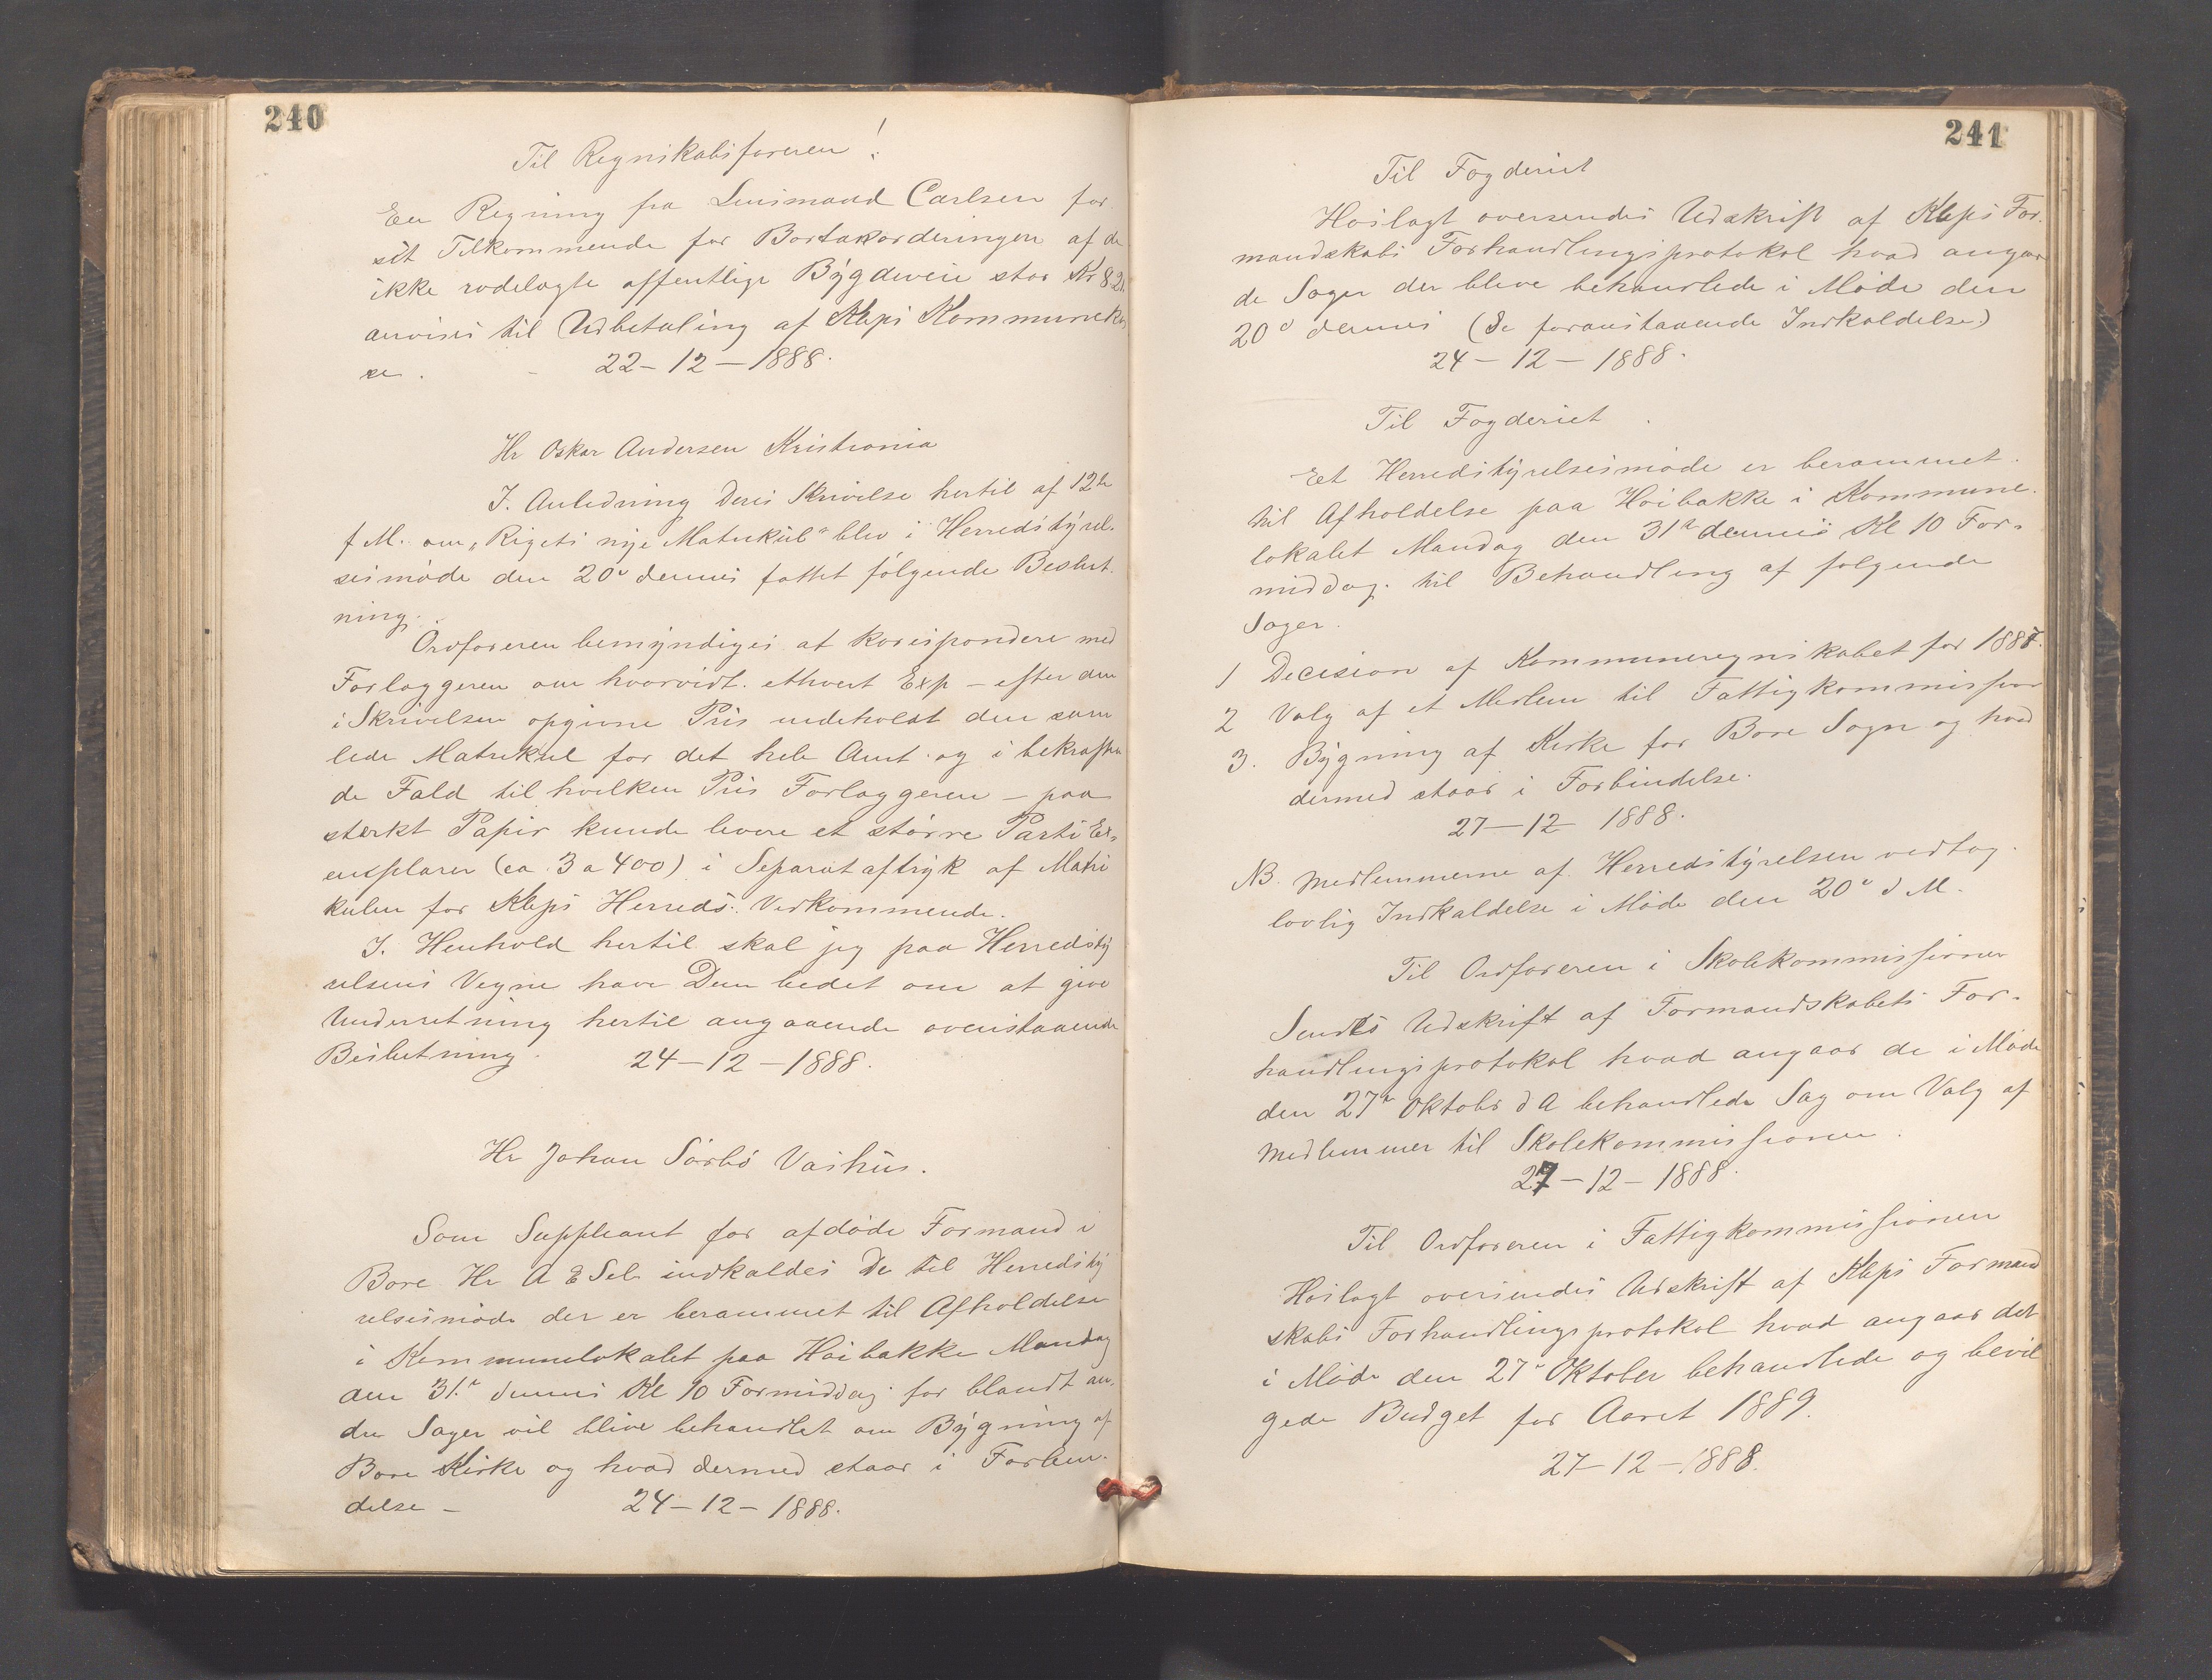 240
Til Regnskabsføreren!
En Regning fra Lensmand Carlsen for
sit Tilkommende for Bortakorderingen af de
ikke rodelagte offentlige Bygdeveie stor Kr 8.20
anvises til Udbetaling af Kleps Kommuneka
se. 22-12-1888.
Hr Oskar Andersen Kristiania
I. Anledning Deres Skrivelse hertil af 12te
f M. om „Rigets nye Matrikül" blev i Herredstyrel-
sesmøde den 20de dennes fattet følgende Beslut-
ning.
Ordføreren bemyndiges at korespondere med
Forlæggeren om hvorvidt ethvert Exp - efter den
i Skrivelsen opgivne Pris indeholdt den sam
lede Matrikul for det hele Amt og i bekræften
de Fald til hvilken Pris Forlæggeren - paa
stærkt Papir kunde levere et større Parti Ex-
emplarer (ca 3 a 400) i Separataftryk af Matri
kulen for Kleps Herreds Vedkommende.
I. Henhold hertil skal jeg paa Herredsty
relsens Vegne have Dem bedet om at give
Underretning hertil angaaende ovenstaaende
Beslutning. 24-12-1888.
Hr Johan Sørbø Vashus.
Som Suppleant for afdøde Formand i
Bore Hr A E Sele indkaldes De til Herredsty
relsesmøde der er berammet til Afholdelse
i Kommunelokalet paa Høibakke Mandag
den 31te dennes Kl 10 Formiddag for blandt an-
dre Sager vil blive behandlet om Bygning af
Bore Kirke og hvad dermed staar i Forbin-
delse - 24-12-1888.
241
Til Fogderiet
Høilagt oversendes Udskrift af Kleps For-
mandskabs Forhandlingsprotokol hvad angaar
de Sager der bleve behandlede i Møde den
20de dennes (Se foranstaaende Indkaldelse)
24-12-1888.
Til Fogderiet
Et Herredstyrelsesmøde er berammet
til Afholdelse paa Høibakke i Kommune-
lokalet Mandag den 31te dennes Kl 10 For-
middag. til Behandling af følgende
Sager.
1 Decision af Kommuneregnskabet for 1887.
2 Valg af et Medlem til Fattigkommissionen
3. Bygning af Kirke for Bore Sogn og hvad
dermed staar i Forbindelse.
27-12 1888.
NB. Medlemmerne af Herredstyrelsen vedtog
lovlig Indkaldelse i Møde den 20de d M.
Til Ordføreren i Skolekommissionen
Sendes Udskrift af Formandskabets For-
handlingsprotokol hvad angaar de i Møde
den 27de Oktobr d A behandlede Sag om Valg af
Medlemmer til Skolekommissionen.
27-12-1888.
Til Ordføreren i Fattigkommissionen
Høilagt oversendes Udskrift af Kleps Formand
skabs Forhandlingsprotokol hvad angaar det
i Møde den 27de Oktober behandlede og bevil
gede Budget for Aaret 1889.
27-12-1888.